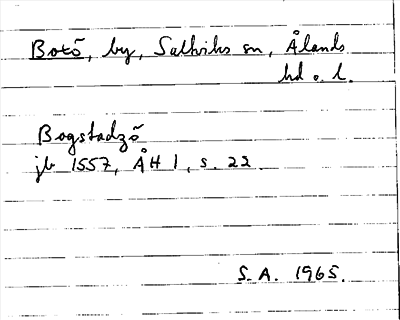 Botö, by, Saltviks sn, Ålands
hd o. l.
Bogstadzö
jb 1557, ÅH 1, s. 22
S.A. 1965.